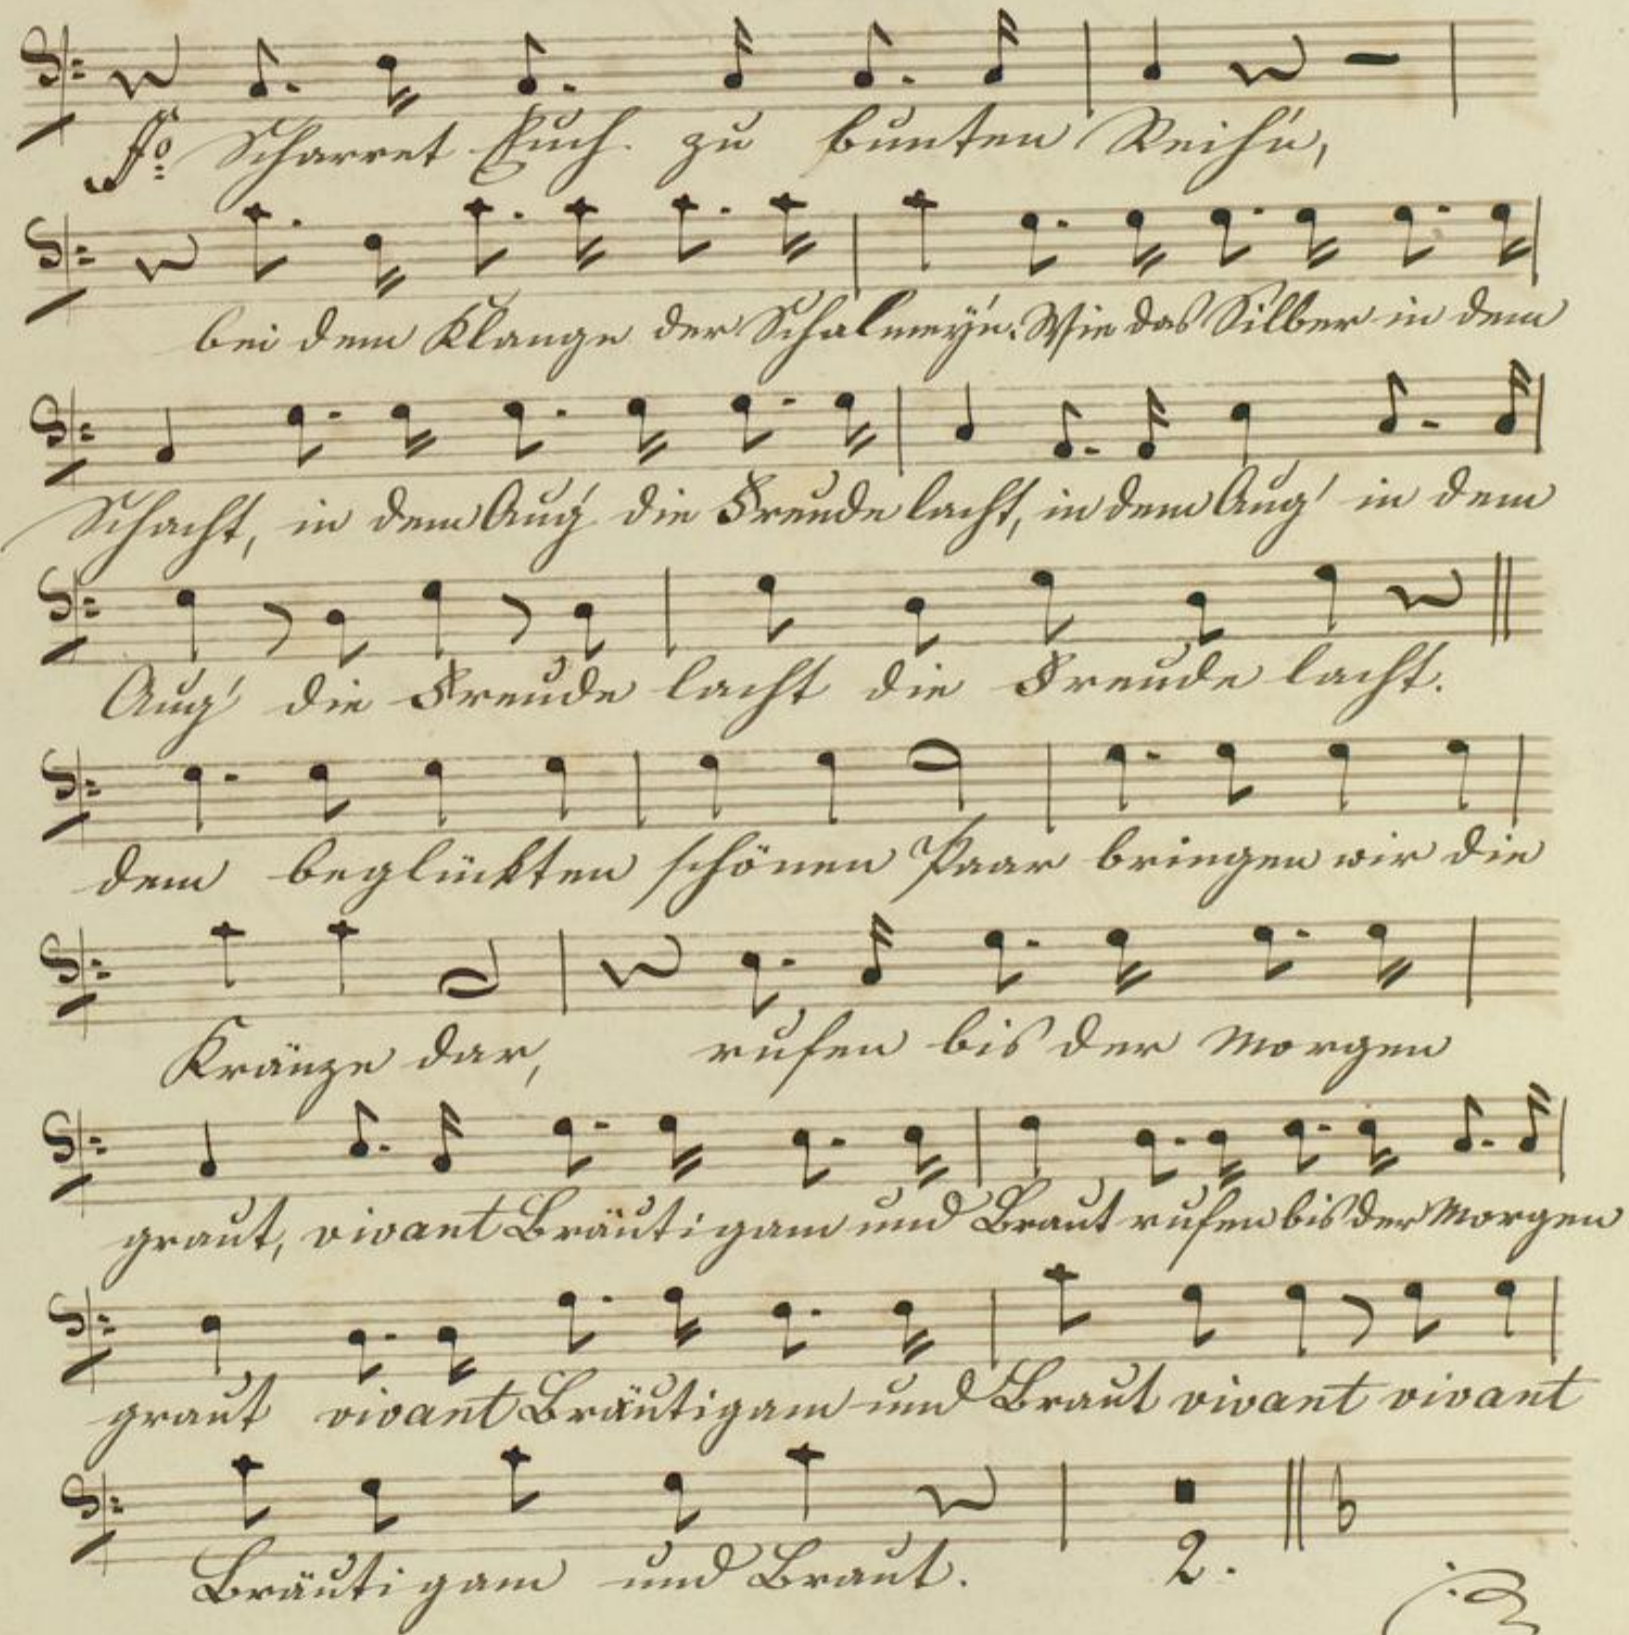 Fo: Scharret Euch zu bunten Reih'n,
bei dem Klange der Schalmeyn: Wie das Silber in dem
Schacht, in dem Aug' die Freude lacht, in dem Aug' in dem
Aug' die Freude lacht die Freude lacht.
dem beglückten schönen Paar bringen wir die
Kränze dar, rufen bis der Morgen
graut, vivant Bräutigam und Braut rufen bis der Morgen
graut vivant Bräutigam und Braut vivant vivant
Bräutigam und Braut. 2.